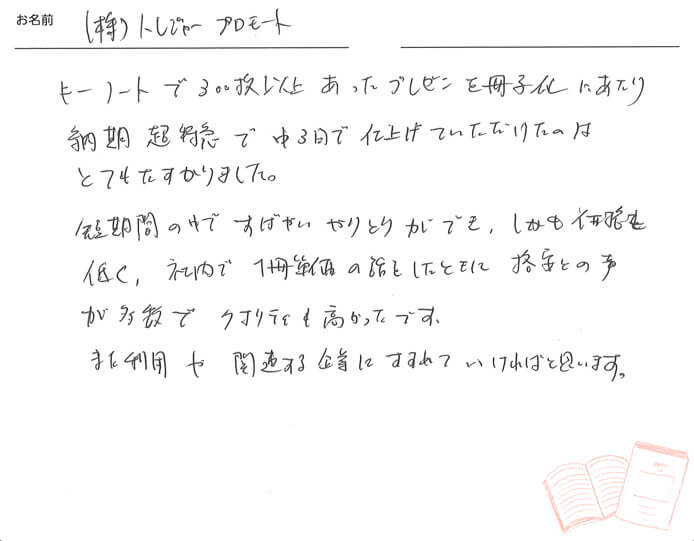 お名前 (株)トレジャープロモート
キーノートで300枚以上あったプレゼンを冊子化にあたり
納期超特急で中3日で仕上げていただけたのは
とてもたすかりました。
短期間の中ですばやいやりとりができ、しかも価格も
低く、社内で1冊単価の話をしたときに格安との声
が多数でクオリティも高かったです。
また利用や関連する企業にすすめていければと思います。